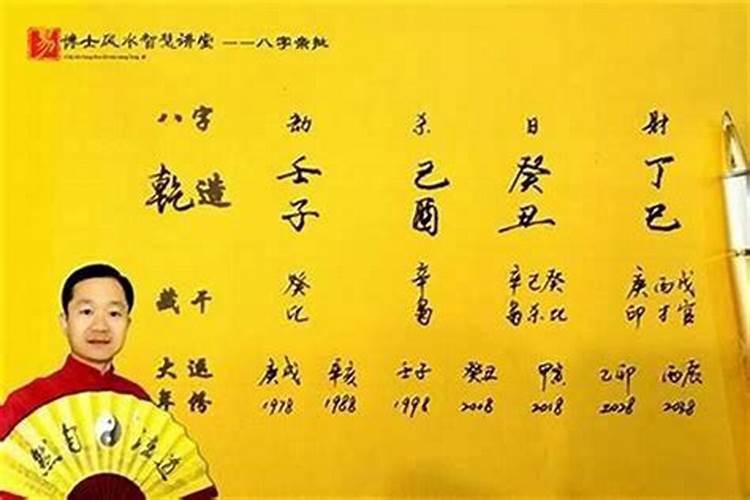 易 博士风水智慧讲堂 ——八字亲批
八字 劫 杀 日 财
乾造 壬 己 癸 丁
子 酉 丑 巳
藏干 癸 辛 辛己癸 庚丙戊
比 枭 枭杀比 印才官
大运 庚戌 辛亥 壬子 癸丑 甲寅 乙卯 丙辰
年份 1978 1988 1998 2008 2018 2028 2038
道法自然